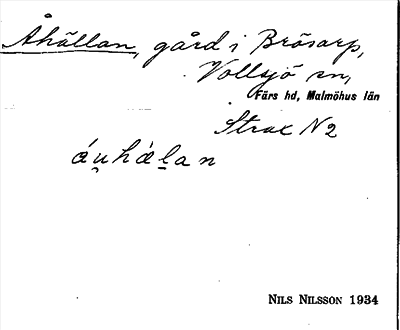 Åhällan, gård i Brösarp,
Vollsjö sn,
Färs hd, Malmöhus län
Strax N 2
áu̯hál̠an
NILS NILSSON 1934